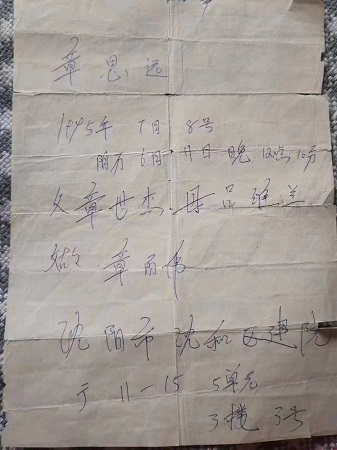 章思远
1995年 7月 8号
阴力 6月 11日 晚 12点10分
父章世杰.母吕
章丽伟
沈阳市沈和区建院
11-15 5单元
3楼 3号